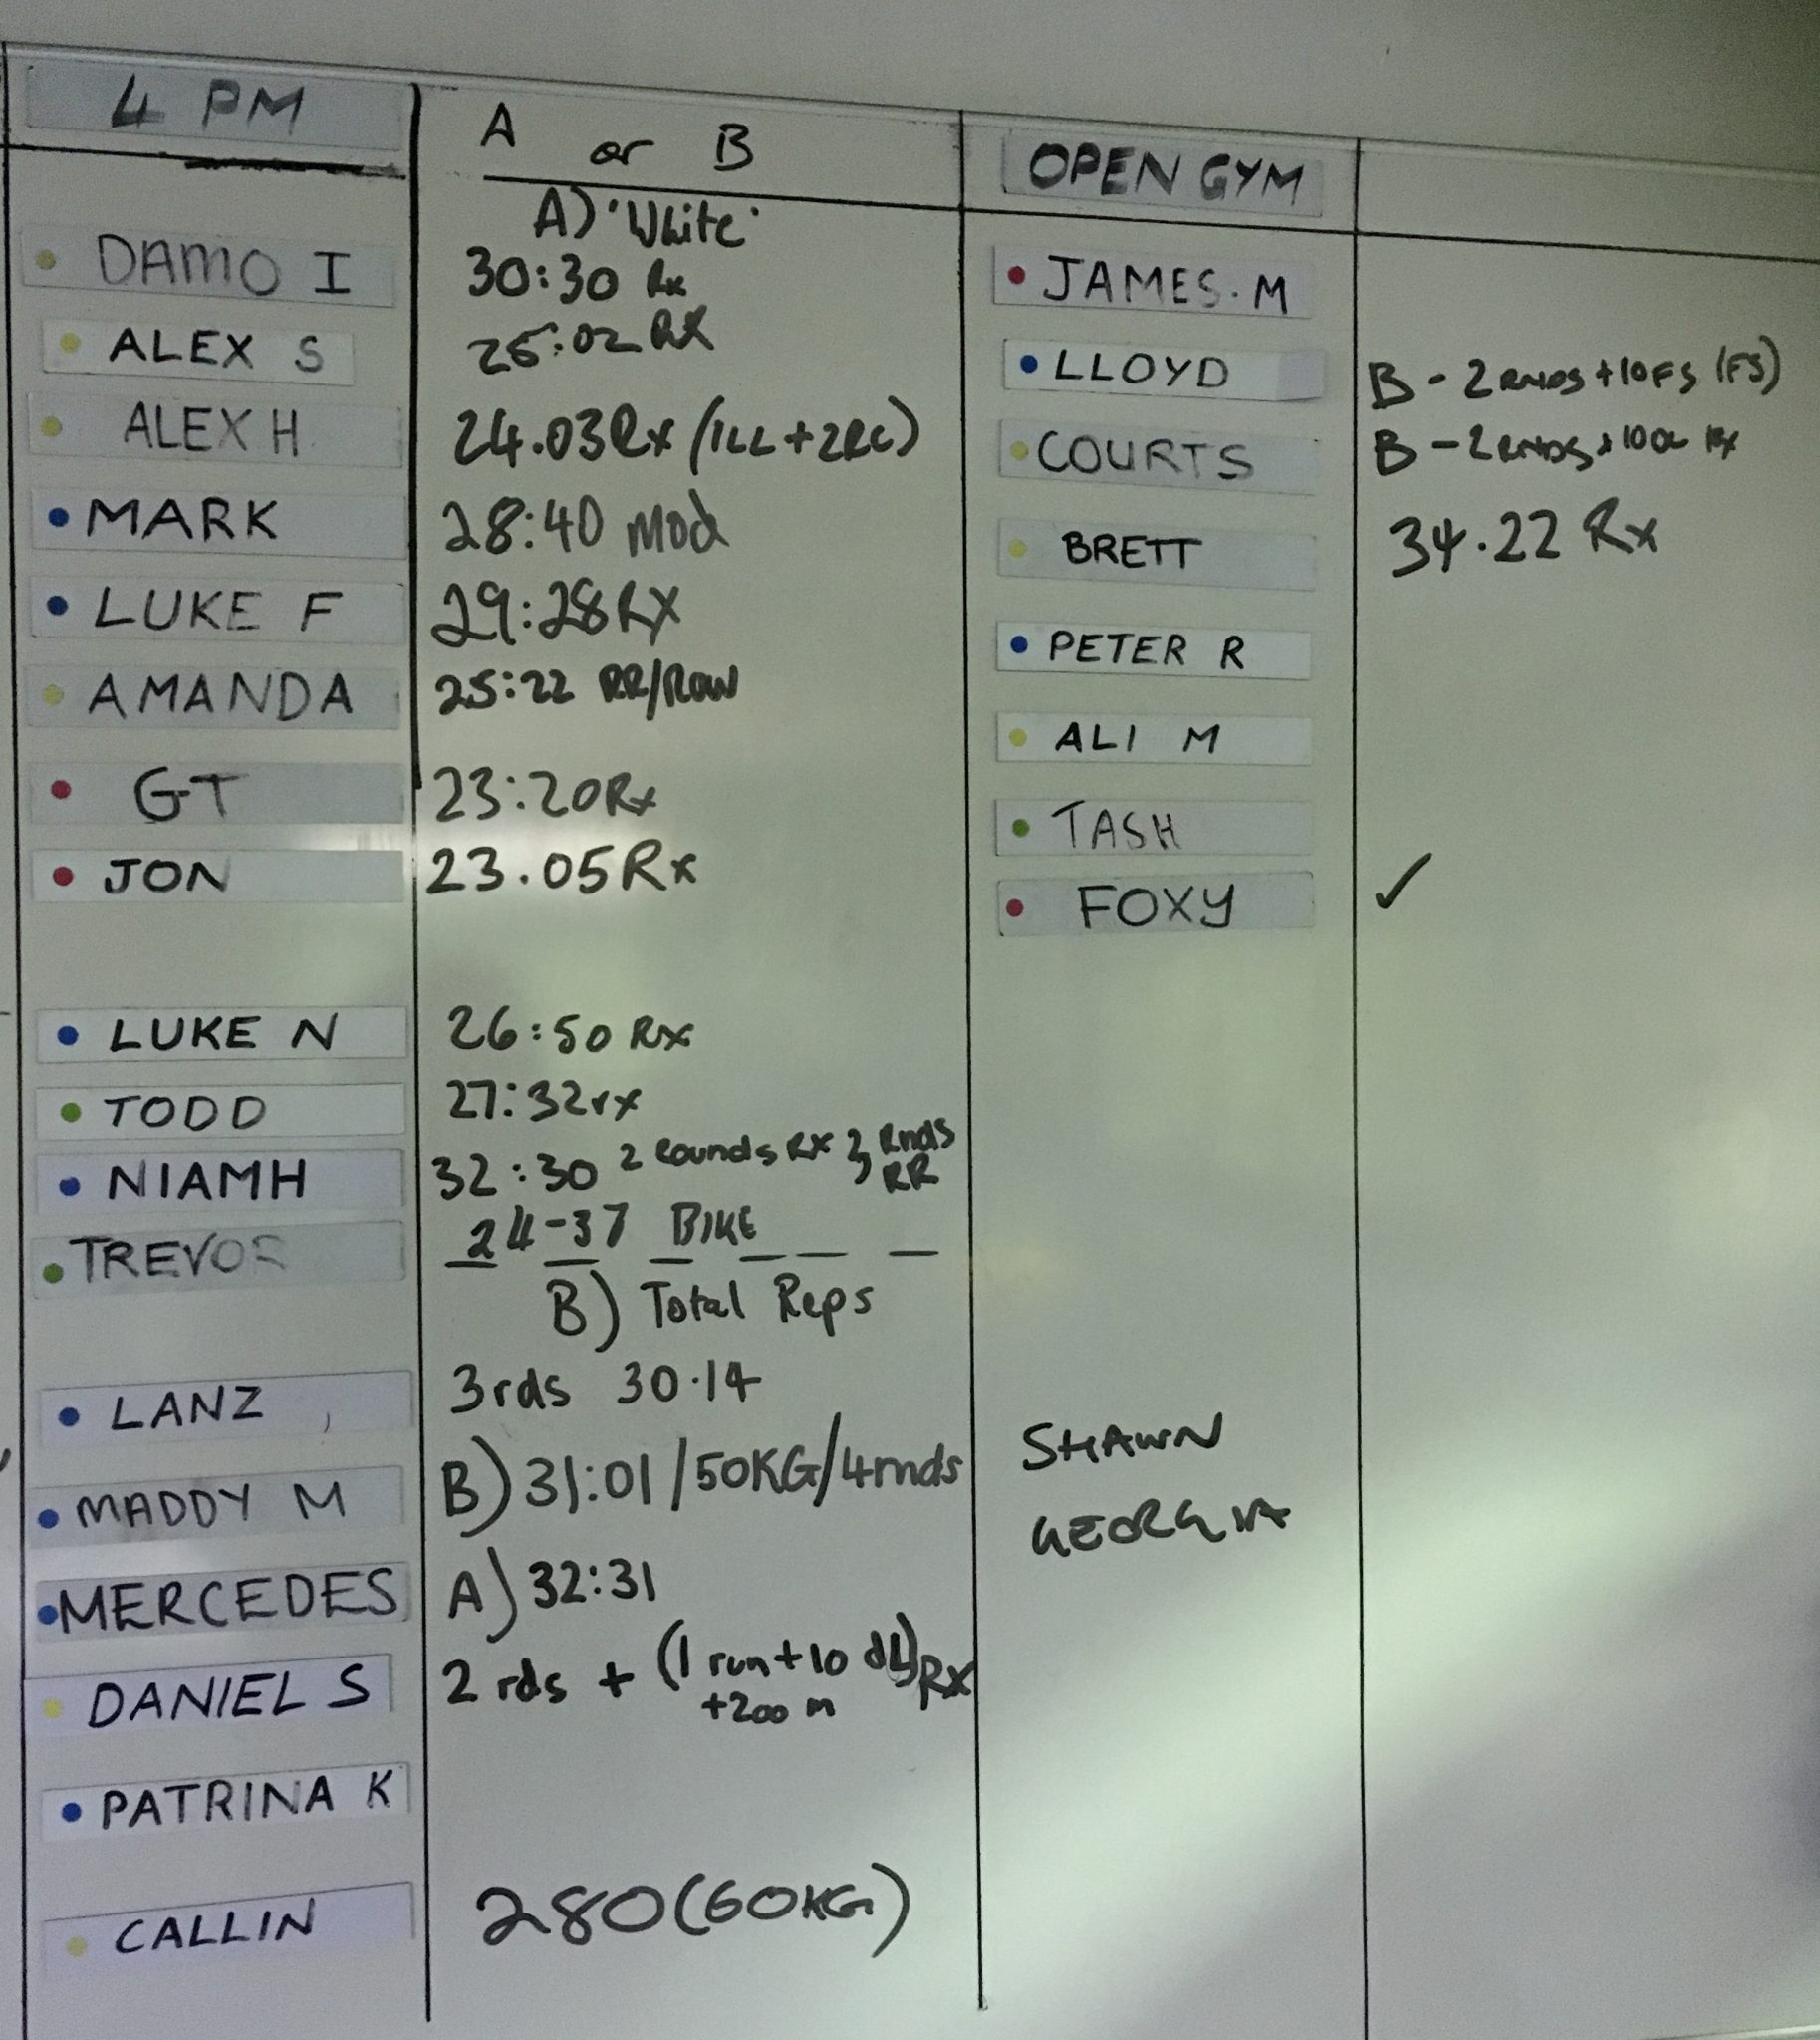 4 PM
A or B
A) 'White'
DAMO I 30:30 Rx
ALEX S 25:02 RX
ALEX H 24.03 Rx (1LL+2RC)
MARK 28:40 Mod
LUKE F 29:28 RX
AMANDA 25:22 RR/ROW
GT 23:20 Rx
JON 23.05 Rx
LUKE N 26:50 Rx
TODD 27:32 rx
NIAMH 32:30 2 Rounds RX 3 Rnds RR
TREVOR 24-37 BIKE
B) Total Reps
LANZ 3rds 30.14
MADDY M B) 31:01/50KG/4rnds
MERCEDES A) 32:31
DANIEL S 2 rds + (1 run+10 dL) Rx
+200 m
PATRINA K
CALLIN 280 (60KG)
OPEN GYM
JAMES.M
LLOYD B - 2 RNDS +10 FS (FS)
COURTS B - 2 RNDS + Rx
BRETT 34.22 Rx
PETER R
ALI M
TASH
FOXY ✓
SHAWN
GEORGIA